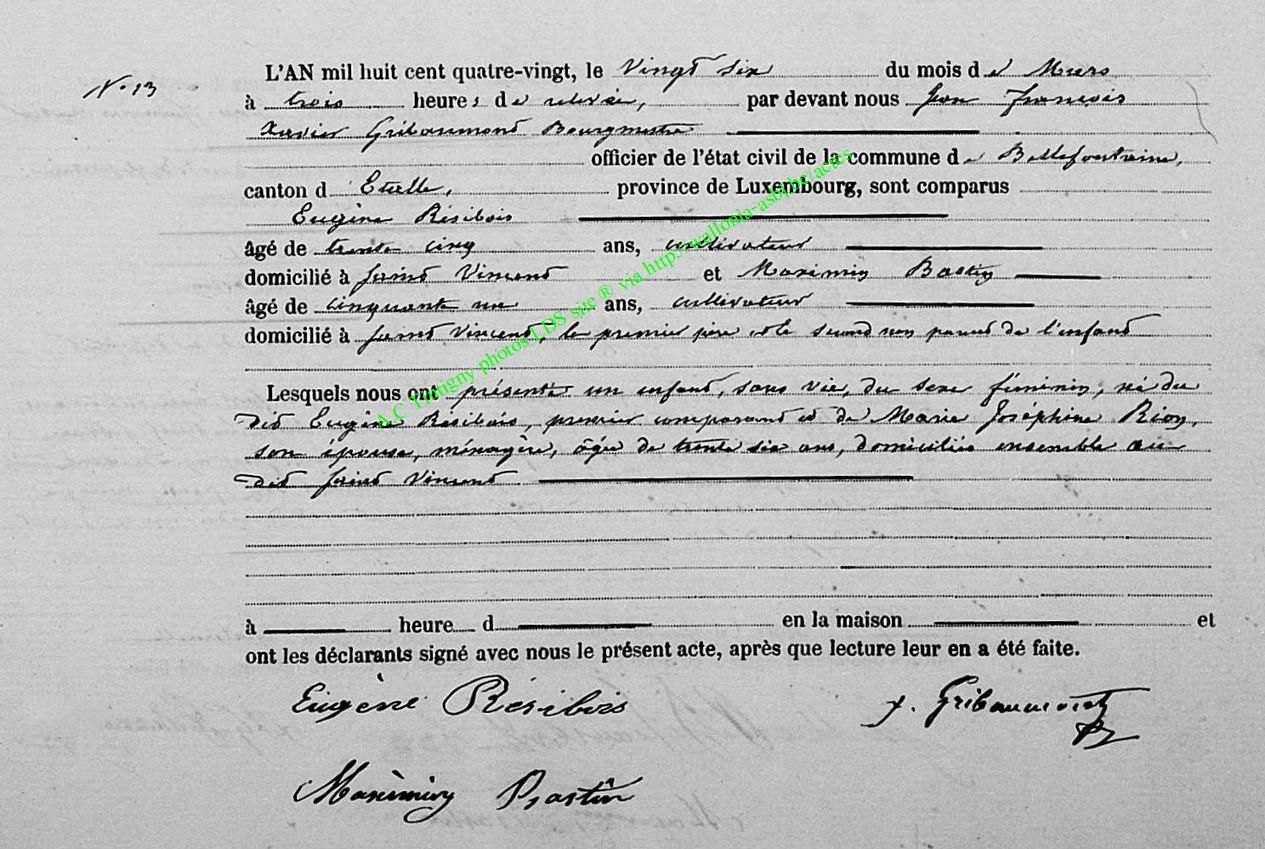 N° 13
L'AN mil huit cent quatre-vingt, le vingt six du mois de Mars
à trois heures de relevée, par devant nous Jean François
Xavier Gribaumont Bourgmestre
officier de l'état civil de la commune de Bellefontaine,
canton d'Etalle, province de Luxembourg, sont comparus
Eugène Résibois
âgé de trente cinq ans, cultivateur
domicilié à Saint Vincent et Maximin Bastin
âgé de cinquante un ans, cultivateur
domicilié à Saint Vincent, le premier père et le second non parent de l'enfant
Lesquels nous ont présenté un enfant, sans vie, du sexe féminin, né du
dit Eugène Résibois, premier comparant et de Marie Joséphine Rion,
son épouse, ménagère, âgée de trente six ans, domiciliés ensemble au
dit Saint Vincent
à heure d en la maison et
ont les déclarants signé avec nous le présent acte, après que lecture leur en a été faite.
Eugène Résibois x. Gribaumont
Maximin Bastin
A.C Tintigny photos LDS site ® via http://wallonia-asbl.be/actes